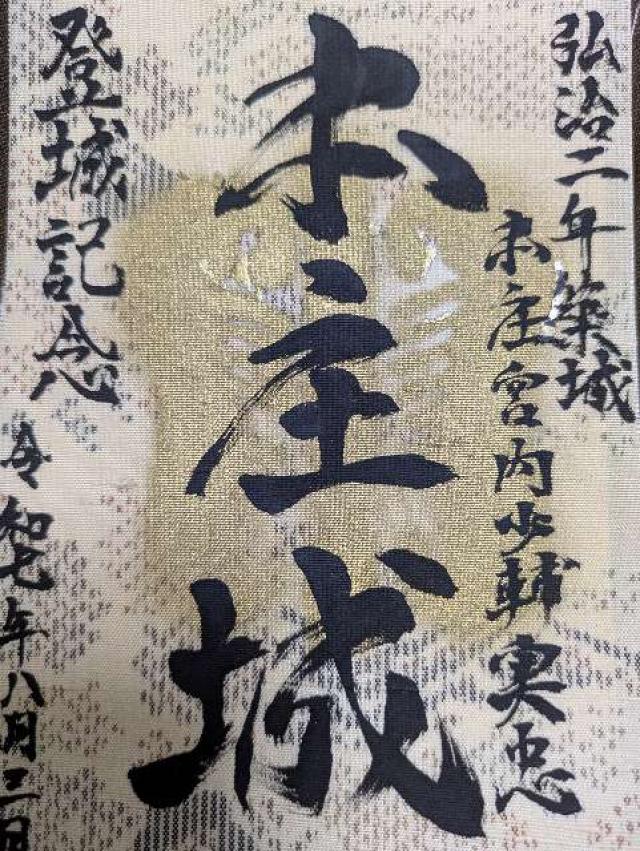 弘治二年築城
本庄宮内少輔実忠
本庄城
登城記念
令和七年八月三日